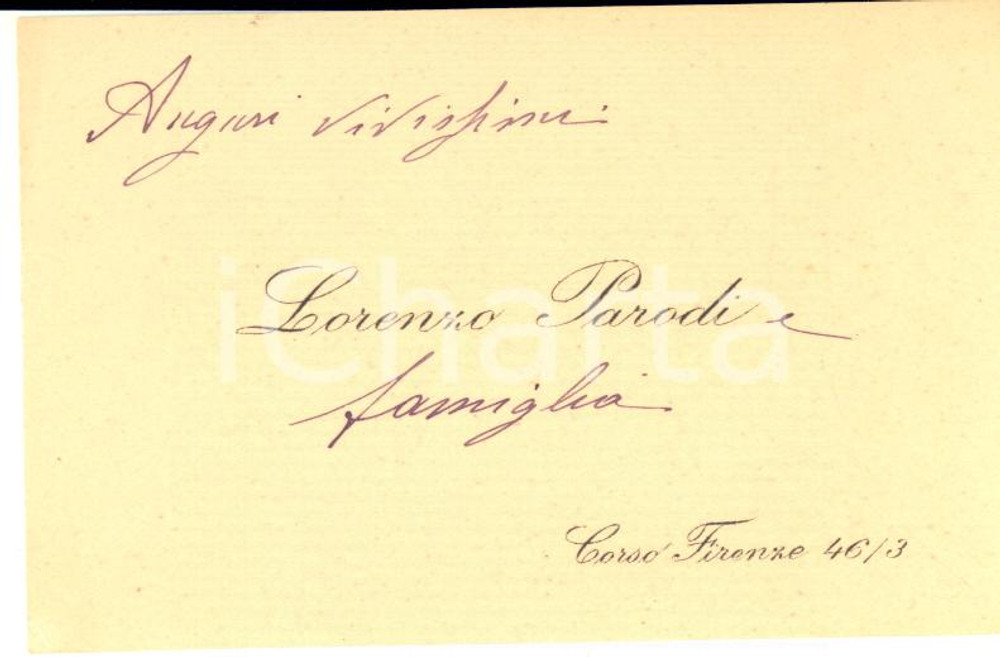 Auguri vivissimi
Lorenzo Parodi e
famiglia
Corso Firenze 46/3
iCharta